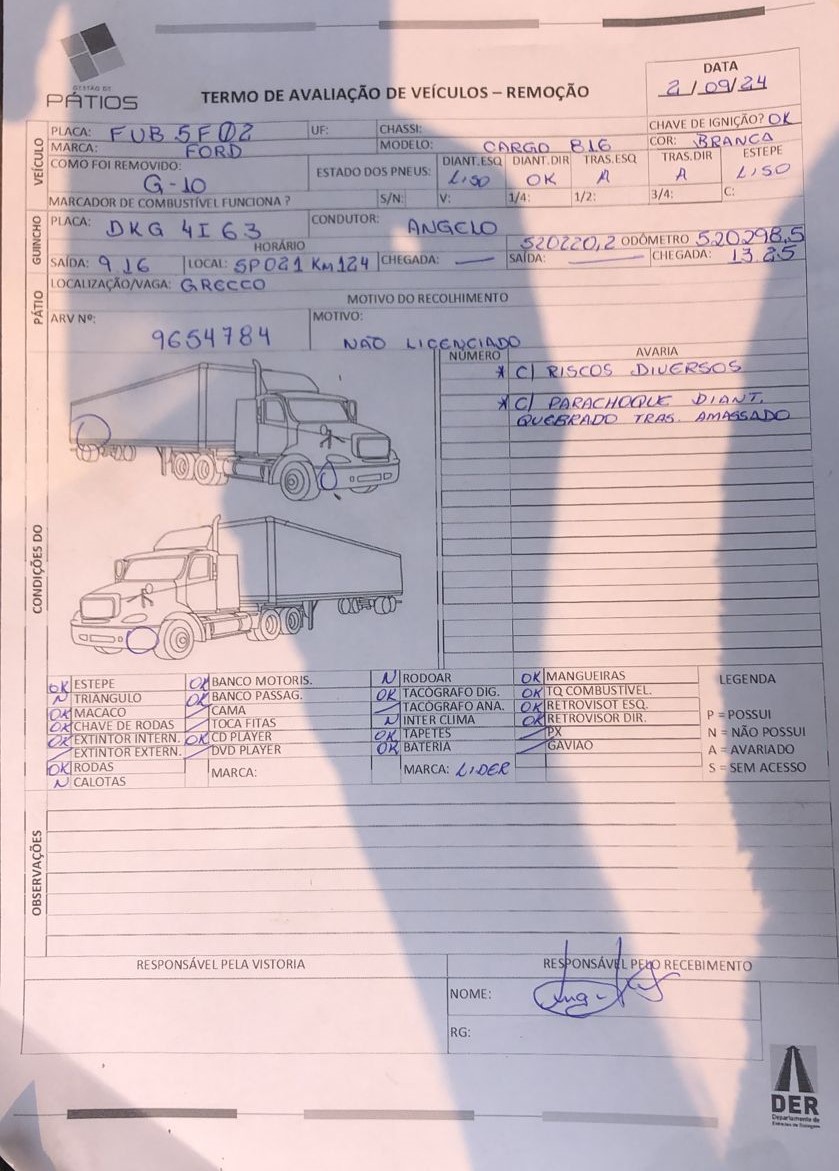 GESTÃO DE
PÁTIOS
TERMO DE AVALIAÇÃO DE VEÍCULOS – REMOÇÃO
DATA
2/09/24
VEÍCULO
PLACA: FUB 5F02 UF: CHASSI: CHAVE DE IGNIÇÃO? OK
MARCA: FORD MODELO: CARGO 816 COR: BRANCA
COMO FOI REMOVIDO: G-10
ESTADO DOS PNEUS: DIANT.ESQ LISO DIANT.DIR OK TRAS.ESQ A TRAS.DIR A ESTEPE LISO
MARCADOR DE COMBUSTÍVEL FUNCIONA ? S/N: V: 1/4: 1/2: 3/4: C:
GUINCHO
PLACA: DKG 4I63 CONDUTOR: ANGELO
HORÁRIO 520220,2 ODÔMETRO 520298,5
SAÍDA: 9 16 LOCAL: SP021 Km124 CHEGADA: — SAÍDA: — CHEGADA: 13 25
PÁTIO
LOCALIZAÇÃO/VAGA: GRECCO
MOTIVO DO RECOLHIMENTO
ARV Nº: 9654784 MOTIVO: NÃO LICENCIADO
CONDIÇÕES DO
NÚMERO AVARIA
* C/ RISCOS DIVERSOS
* C/ PARACHOQUE DIANT.
QUEBRADO TRAS. AMASSADO
OK ESTEPE
N TRIANGULO
OK MACACO
OK CHAVE DE RODAS
OK EXTINTOR INTERN.
EXTINTOR EXTERN.
OK RODAS
N CALOTAS
OK BANCO MOTORIS.
OK BANCO PASSAG.
CAMA
TOCA FITAS
OK CD PLAYER
DVD PLAYER
MARCA:
N RODOAR
OK TACÓGRAFO DIG.
TACÓGRAFO ANA.
N INTER CLIMA
OK TAPETES
OK BATERIA
MARCA: LIDER
OK MANGUEIRAS
OK TQ COMBUSTÍVEL.
OK RETROVISOT ESQ.
OK RETROVISOR DIR.
PX
GAVIAO
LEGENDA
P = POSSUI
N = NÃO POSSUI
A = AVARIADO
S = SEM ACESSO
OBSERVAÇÕES
RESPONSÁVEL PELA VISTORIA
RESPONSÁVEL PELO RECEBIMENTO
NOME:
RG:
DER
Departamento de
Estradas de Rodagem